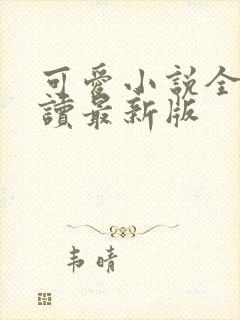 可愛小說全
讀最新版
韦晴